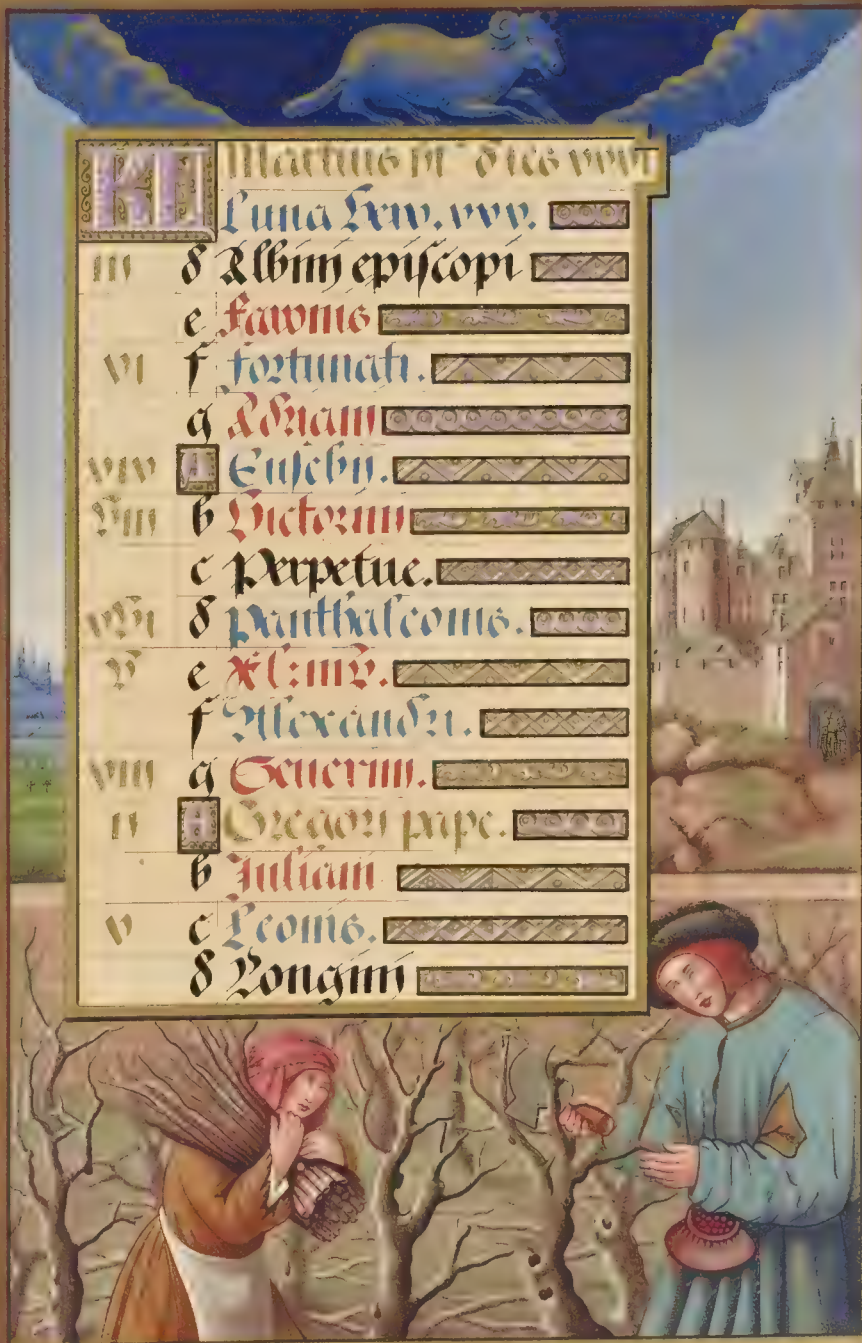 KL Martius h[et] dies xxxi
Luna xxx.
iii d Albini episcopi
e Fawins
vi f fortunati.
g Adriani
xix A Eusebii.
viii b Victorini
c Perpetue.
xvi d panthaleonis.
v e xl: mr.
f Alexandri.
xiii g Seuerini.
ii A Gregorii pape.
b Iuliani
v c Leonis.
d Longini